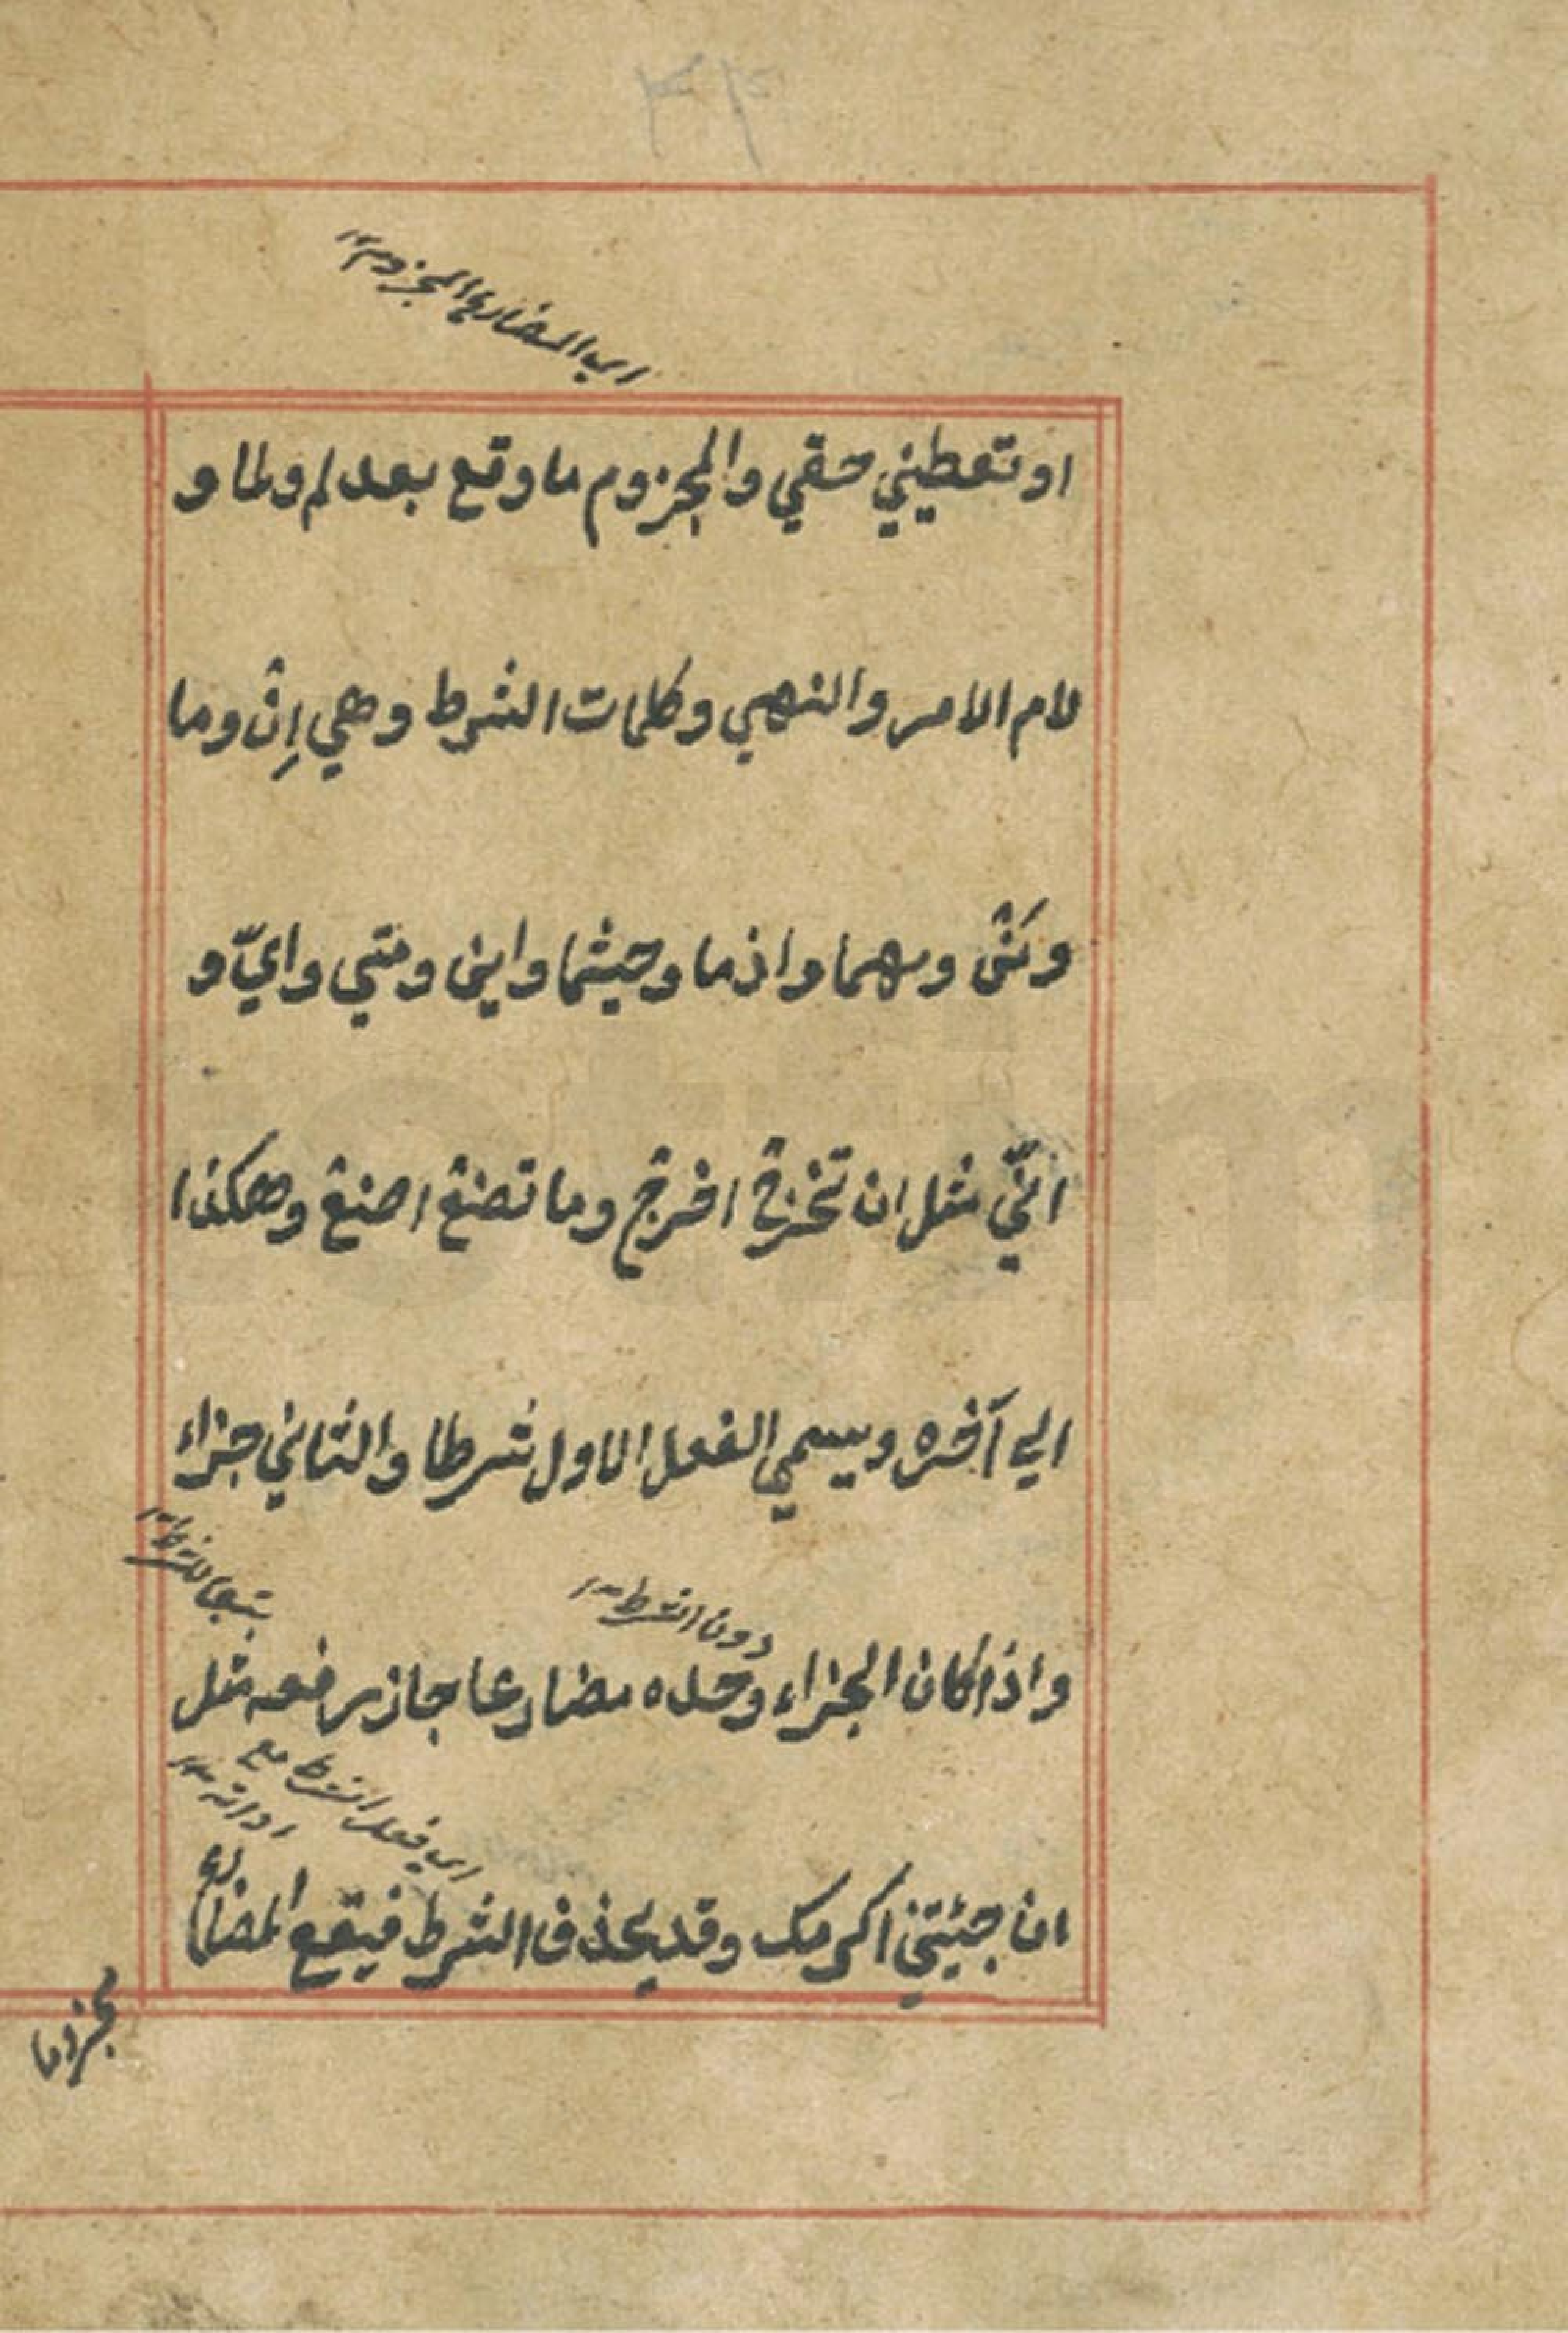 اي المضارع المجزوم ١٢
او تعطيني حقي والمجزوم ما وقع بعد لم ولما و
لام الامر والنهي وكلمات الشرط وهي اِنْ وما
ومَنْ ومهما واذما وحيثما واين ومتي وايّ و
انّي مثل ان تخرجْ اخرجْ وما تصنعْ اصنعْ وهكذا
الي آخره ويسمي الفعل الاول شرطا والثاني جزاء
تبعا للشرط ١٢
دون الشرط ١٢
واذا كان الجزاء وحده مضارعا جاز رفعه مثل
اي فعل الشرط مع
اداته ١٢
ان جئيتني اكرمك وقد يحذف الشرط فيقع المضارع
مجزوما